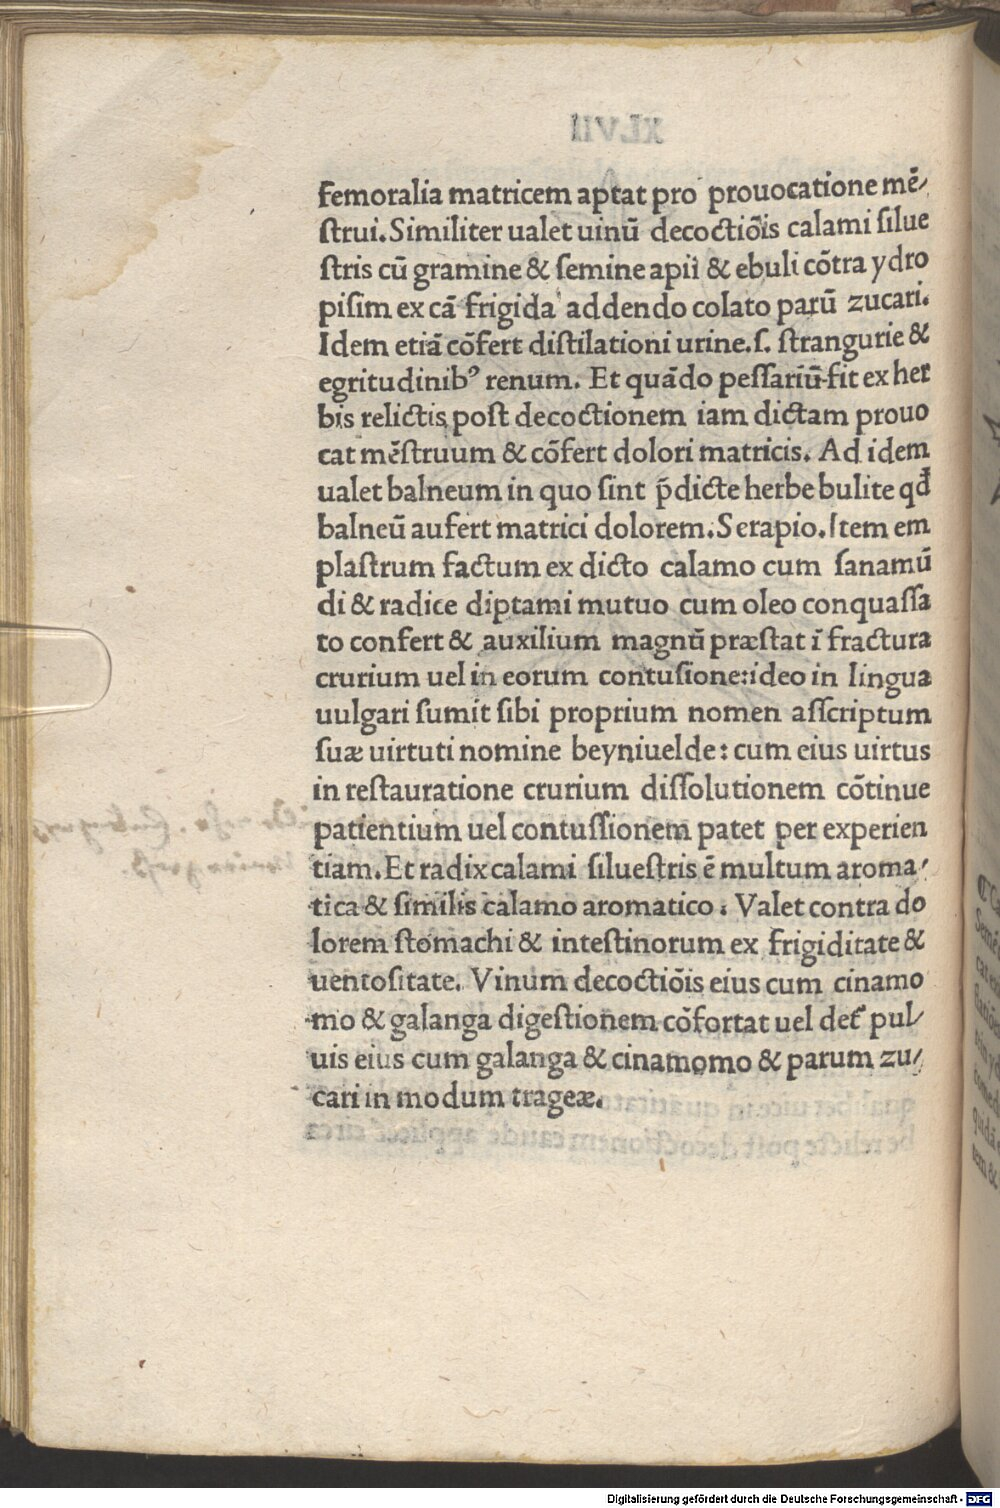 femoralia matricem aptat pro prouocatione mē/
ſtrui. Similiter ualet uinū decoctiōis calami ſilue
ſtris cū gramine & ſemine apii & ebuli cōtra ydro
piſim ex cā frigida addendo colato parū zucari.
Idem etiā cōfert diſtilationi urine. ſ. ſtrangurie &
egritudinibꝰ renum. Et quādo peſſariū fit ex her
bis relictis poſt decoctionem iam dictam prouo
cat mēſtruum & cōfert dolori matricis. Ad idem
ualet balneum in quo ſint p̄dicte herbe bulite qđ
balneū aufert matrici dolorem. Serapio. Item em
plaſtrum factum ex dicto calamo cum ſanamū
di & radice diptami mutuo cum oleo conquaſſa
to confert & auxilium magnū præſtat ī fractura
crurium uel in eorum contuſione: ideo in lingua
uulgari ſumit ſibi proprium nomen aſſcriptum
ſuæ uirtuti nomine beyniuelde: cum eius uirtus
in reſtauratione crurium diſſolutionem cōtinue
patientium uel contuſſionem patet per experien
tiam. Et radix calami ſilueſtris ē multum aroma/
tica & ſimilis calamo aromatico. Valet contra do
lorem ſtomachi & inteſtinorum ex frigiditate &
uentoſitate. Vinum decoctiōis eius cum cinamo
mo & galanga digeſtionem cōfortat uel det᷑ pul/
uis eius cum galanga & cinamomo & parum zu/
cari in modum trageæ.
Digitalisierung gefördert durch die Deutsche Forschungsgemeinschaft - DFG